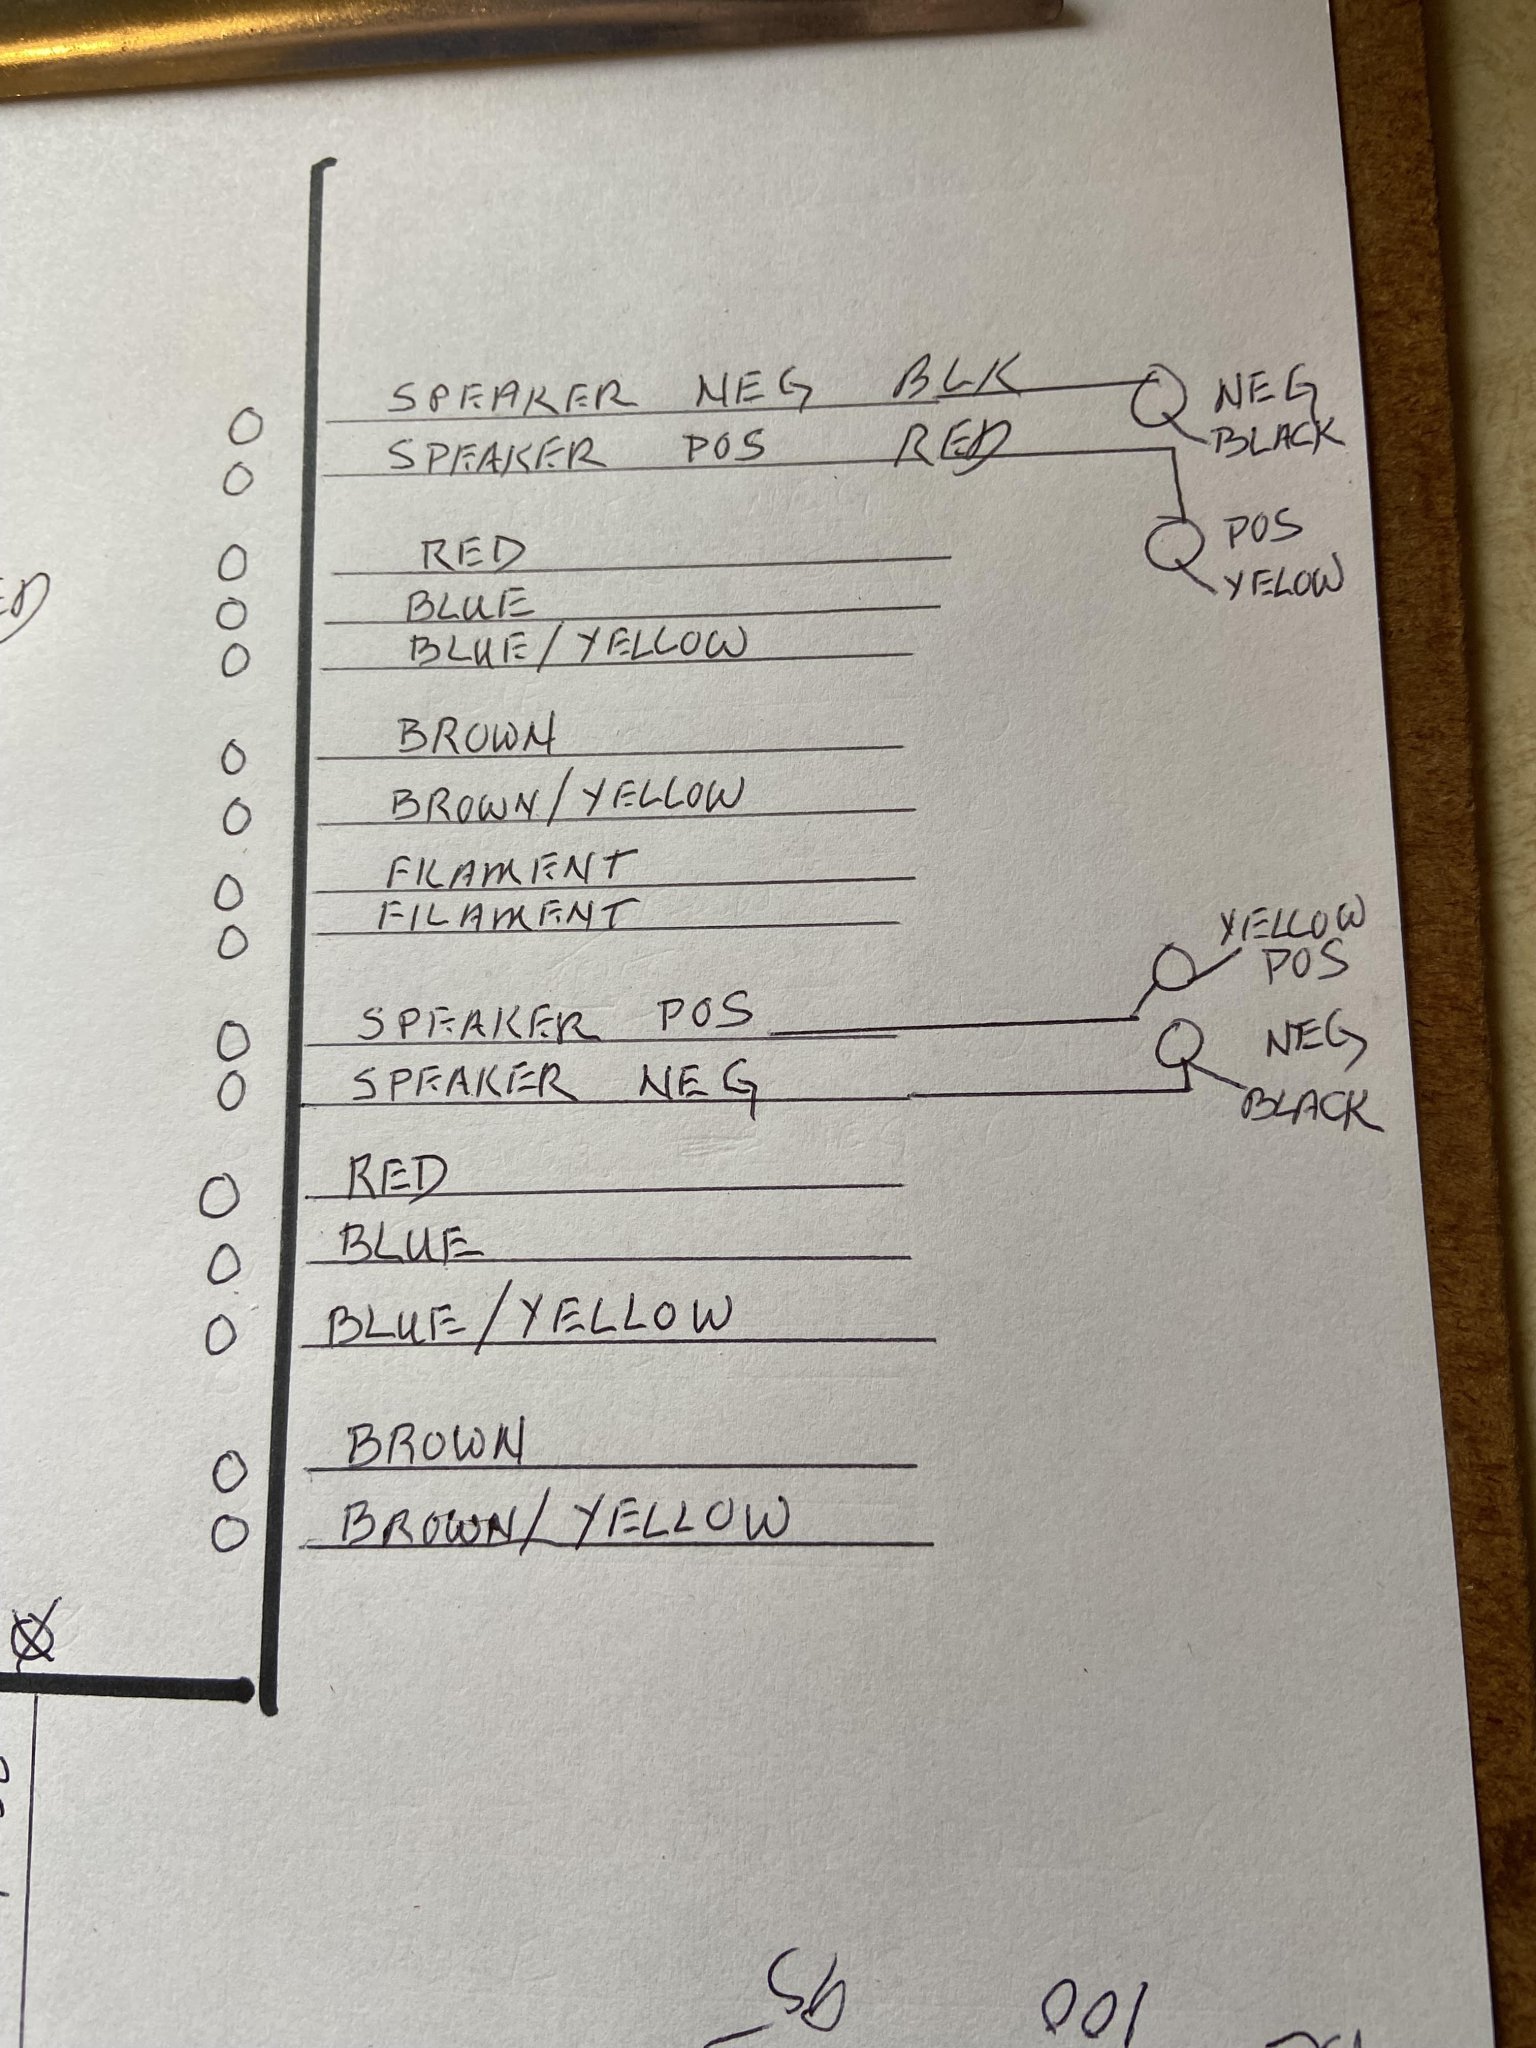 SPEAKER NEG BLK
NEG
BLACK
SPEAKER POS RED
POS
YELOW
RED
BLUE
BLUE/YELLOW
BROWN
BROWN/YELLOW
FILAMENT
FILAMENT
YELLOW
POS
SPEAKER POS
NEG
BLACK
SPEAKER NEG
RED
BLUE
BLUE/YELLOW
BROWN
BROWN/YELLOW
100